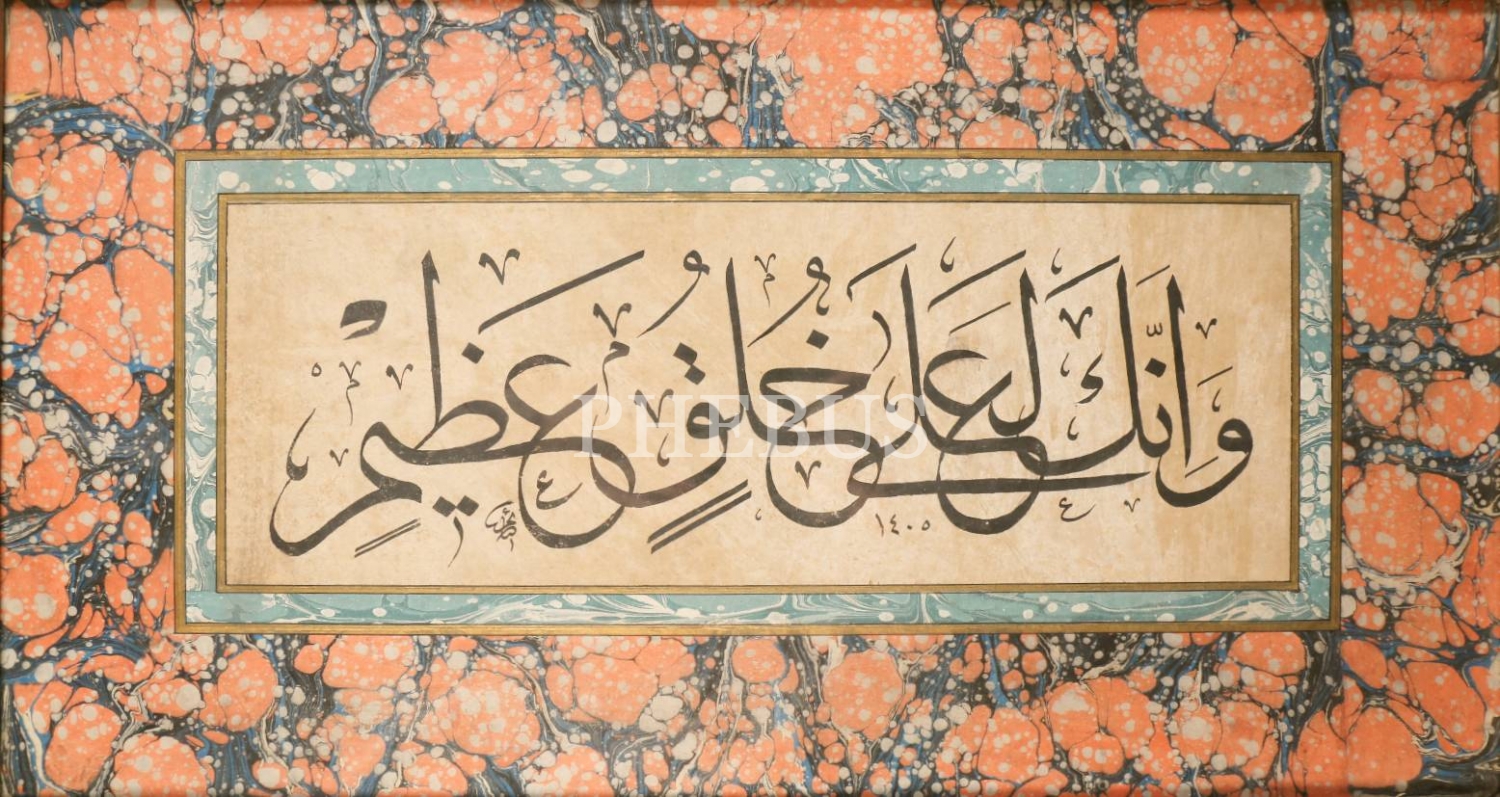 وَاِنَّكَ لَعَلٰى خُلُقٍ عَظٖيمٍ
١٤٠٥
PHEBUS